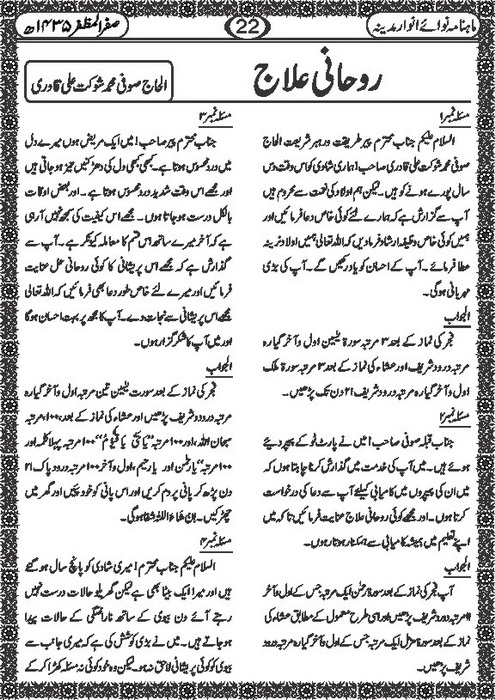 ماہنامہ نوائے انوار مدینہ
22
صفر المظفر ۱۴۳۵ھ
روحانی علاج
الحاج صوفی محمد شوکت علی قادری
مسئلہ نمبر۱
السلام علیکم جناب محترم پیر طریقت ورہبر شریعت الحاج
صوفی محمد شوکت علی قادری صاحب! ہماری شادی کو اس وقت دس
سال پورے ہونے کو ہیں۔ لیکن ہم اولاد کی نعمت سے محروم ہیں
آپ سے گزارش ہے کہ ہمارے لئے کوئی خاص دعا فرمائیں اور
ہمیں کوئی خاص وظیفہ ارشاد فرمادیں کہ اللہ تعالی ہمیں اولاد نرینہ
عطا فرمائے۔ آپ کے احسان کو یاد رکھیں گے۔ آپ کی بڑی
مہربانی ہوگی۔
الجواب
فجر کی نماز کے بعد ۳ مرتبہ سورۃ یٰسین اول و آخر گیارہ
مرتبہ درود شریف اور عشاء کی نماز کے بعد ۳ مرتبہ سورۃ ملک
اول و آخر گیارہ مرتبہ درود شریف ۲۱ دن تک پڑھیں۔
مسئلہ نمبر۲
جناب قبلہ صوفی صاحب! میں نے پارٹ ٹو کے پیپر دیے
ہوئے ہیں۔ میں آپ کی خدمت میں گذارش کرنا چاہتا ہوں کہ
میں ان کی پیپروں میں کامیابی کیلئے آپ سے دعا کی درخواست
کرتا ہوں۔ اور مجھے کوئی روحانی علاج عنایت فرمائیں تاکہ میں
اپنے تعلیم میں ہمیشہ کامیابی سے ہمکنار ہوتا رہوں۔
الجواب
آپ فجر کی نماز کے بعد سورۃ رحمٰن ایک مرتبہ جس کے اول و آخر
۱۱ مرتبہ درود شریف پڑھیں اور اسی طرح معمول کے مطابق عشاء کی
نماز کے بعد سورۃ مزمل ایک مرتبہ جس کے اول و آخر گیارہ مرتبہ درود
شریف پڑھیں۔
مسئلہ نمبر۳
جناب محترم پیر صاحب! میں ایک مریض ہوں میرے دل
میں درد محسوس ہوتا ہے۔ کبھی کبھی دل کی دھڑکنیں تیز ہو جاتی ہیں
اور مجھے اس وقت شدید درد محسوس ہوتا ہے۔ اور بعض اوقات
بالکل درست ہو جاتا ہوں۔ مجھے اس کیفیت کی سمجھ نہیں آرہی
ہے کہ آخر میرے ساتھ اس قسم کا معاملہ کیونکر ہے۔ آپ سے
گذارش ہے کہ مجھے اس پریشانی کا کوئی روحانی حل عنایت
فرمائیں اور میرے لئے خاص طور دعا بھی فرمائیں کہ اللہ تعالی
مجھے اس پریشانی سے نجات دے۔ آپ کا مجھ پر بہت احسان ہوگا
اور میں آپ کا شکر گزار ہوں۔
الجواب
فجر کی نماز کے بعد سورت یٰسین تین مرتبہ اول و آخر گیارہ
مرتبہ درود شریف پڑھیں اور عشاء کی نماز کے بعد، ۱۰۰ مرتبہ
سبحان اللہ، اور ۱۰۰ مرتبہ "یَا حَیُّ یَا قَیُّوْمُ" ۱۰۰ مرتبہ پہلا کلمہ اور
۱۰۰ مرتبہ "یا رحمٰن اور یا رحیم، اول و آخر ۱۰۰ مرتبہ درود پاک ۲۱
دن پڑھ کر پانی پر دم کریں اور اس پانی کو خود پئیں اور گھر میں
چھڑکیں۔ اِنْ شَاءَ اللہ شفا ہوگی۔
مسئلہ نمبر۴
السلام علیکم جناب محترم! میری شادی کو پانچ سال ہو گئے
ہیں اور میرا ایک بیٹا بھی ہے لیکن گھریلو حالات درست نہیں
رہتے آئے دن بیوی کے ساتھ ناراضگی کے حالات پیدا
ہو جاتے ہیں۔ میں نے بڑی کوشش کی ہے کہ میری جانب سے
بیوی کو کوئی پریشانی لاحق نہ ہو۔ لیکن وہ خود کوئی نہ مسئلہ کھڑا کر کے